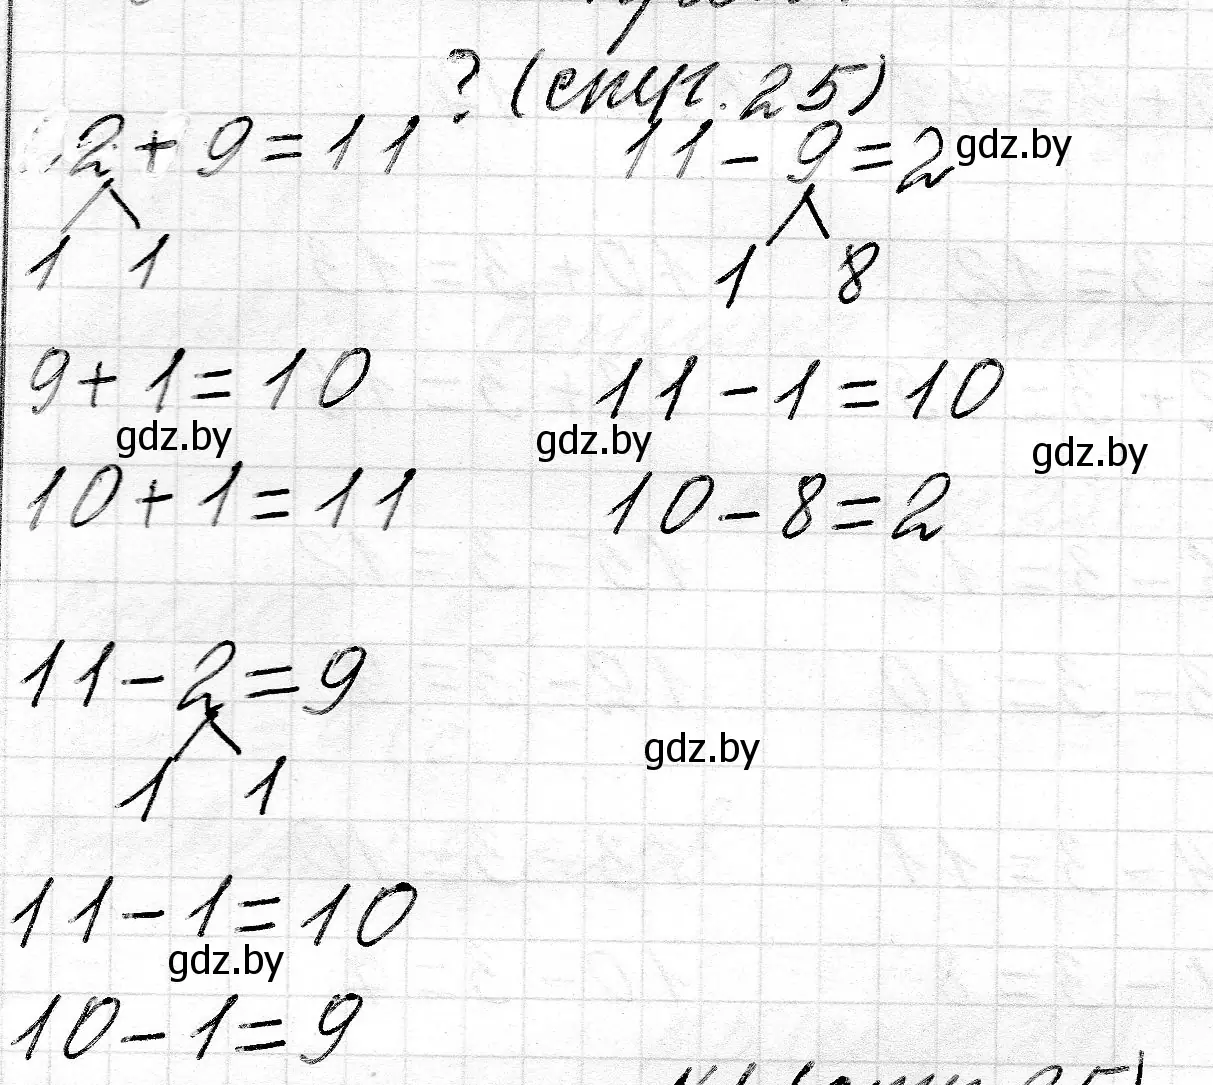 ? (стр. 25)
2 + 9 = 11
1 1
9 + 1 = 10
10 + 1 = 11
11 - 9 = 2
1 8
11 - 1 = 10
10 - 8 = 2
11 - 2 = 9
1 1
11 - 1 = 10
10 - 1 = 9
gdz.by
gdz.by
gdz.by
gdz.by
gdz.by
gdz.by